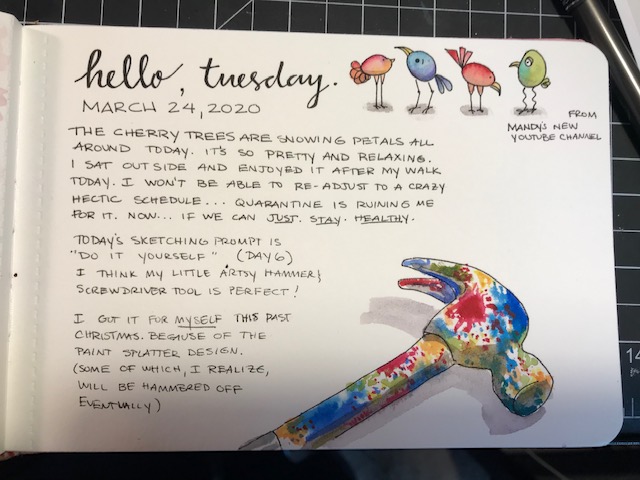 hello, tuesday.
MARCH 24, 2020
FROM
MANDY'S NEW
YOUTUBE CHANNEL
THE CHERRY TREES ARE SNOWING PETALS ALL
AROUND TODAY. IT'S SO PRETTY AND RELAXING.
I SAT OUTSIDE AND ENJOYED IT AFTER MY WALK
TODAY. I WON'T BE ABLE TO RE-ADJUST TO A CRAZY
HECTIC SCHEDULE... QUARANTINE IS RUINING ME
FOR IT. NOW... IF WE CAN JUST. STAY. HEALTHY.
TODAY'S SKETCHING PROMPT IS
"DO IT YOURSELF" (DAY 6)
I THINK MY LITTLE ARTSY HAMMER &
SCREWDRIVER TOOL IS PERFECT!
I GOT IT FOR MYSELF THIS PAST
CHRISTMAS. BECAUSE OF THE
PAINT SPLATTER DESIGN.
(SOME OF WHICH, I REALIZE,
WILL BE HAMMERED OFF
EVENTUALLY)
14